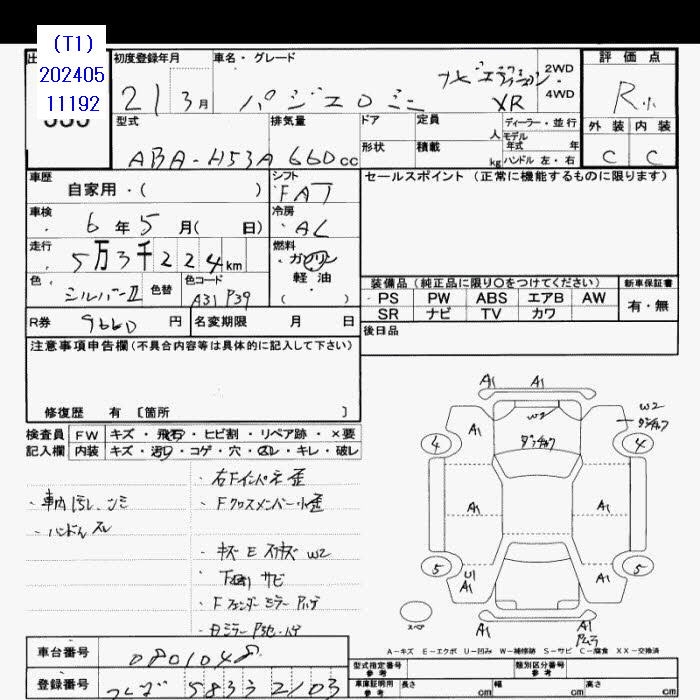 (T1)
202405
11192
初度登録年月
21 3月
車名・グレード
パジェロミニ
XR
2WD
4WD
評価点
R
外装 内装
C C
型式
ABA-H53A
排気量
660cc
ドア
形状
定員
人
積載
kg
ディーラー・並行
モデル
年式 年
ハンドル 左・右
車歴
自家用・( )
シフト
FAT
セールスポイント(正常に機能するものに限ります)
車検
6年5月( 日)
冷房
AC
走行
5万3千224km
燃料
ガソリン
軽油
( )
色
シルバーII
色替
色コード
A31 P39
装備品(純正品に限り○をつけてください)
新車保証書
PS PW ABS エアB AW
有・無
SR ナビ TV カワ
R券 9660円
名変期限 月 日
後日品
注意事項申告欄(不具合内容等は具体的に記入して下さい)
修復歴 有 〔箇所 〕
検査員
記入欄
FW キズ・飛石・ヒビ割・リペア跡・×要
内装 キズ・汚れ・コゲ・穴・スレ・キレ・破レ
・車内汚レ、シミ
・ハンドルスレ
・右Fインパネ歪
・Fクロスメンバー小歪
・キズE W2
下回りサビ
・Fフェンダーミラー
A1 A1
A1
W2
W2
4
4
A1
A1
5
5
U1
A1
A1
A1
スペア
A-キズ E-エクボ U-凹み W-補修跡 S-サビ C-腐食 XX-交換済
車台番号
0801048
登録番号
583 2103
型式指定番号
参考
類別区分番号
参考
車庫証明用
参考
長さ cm
幅 cm
高さ cm